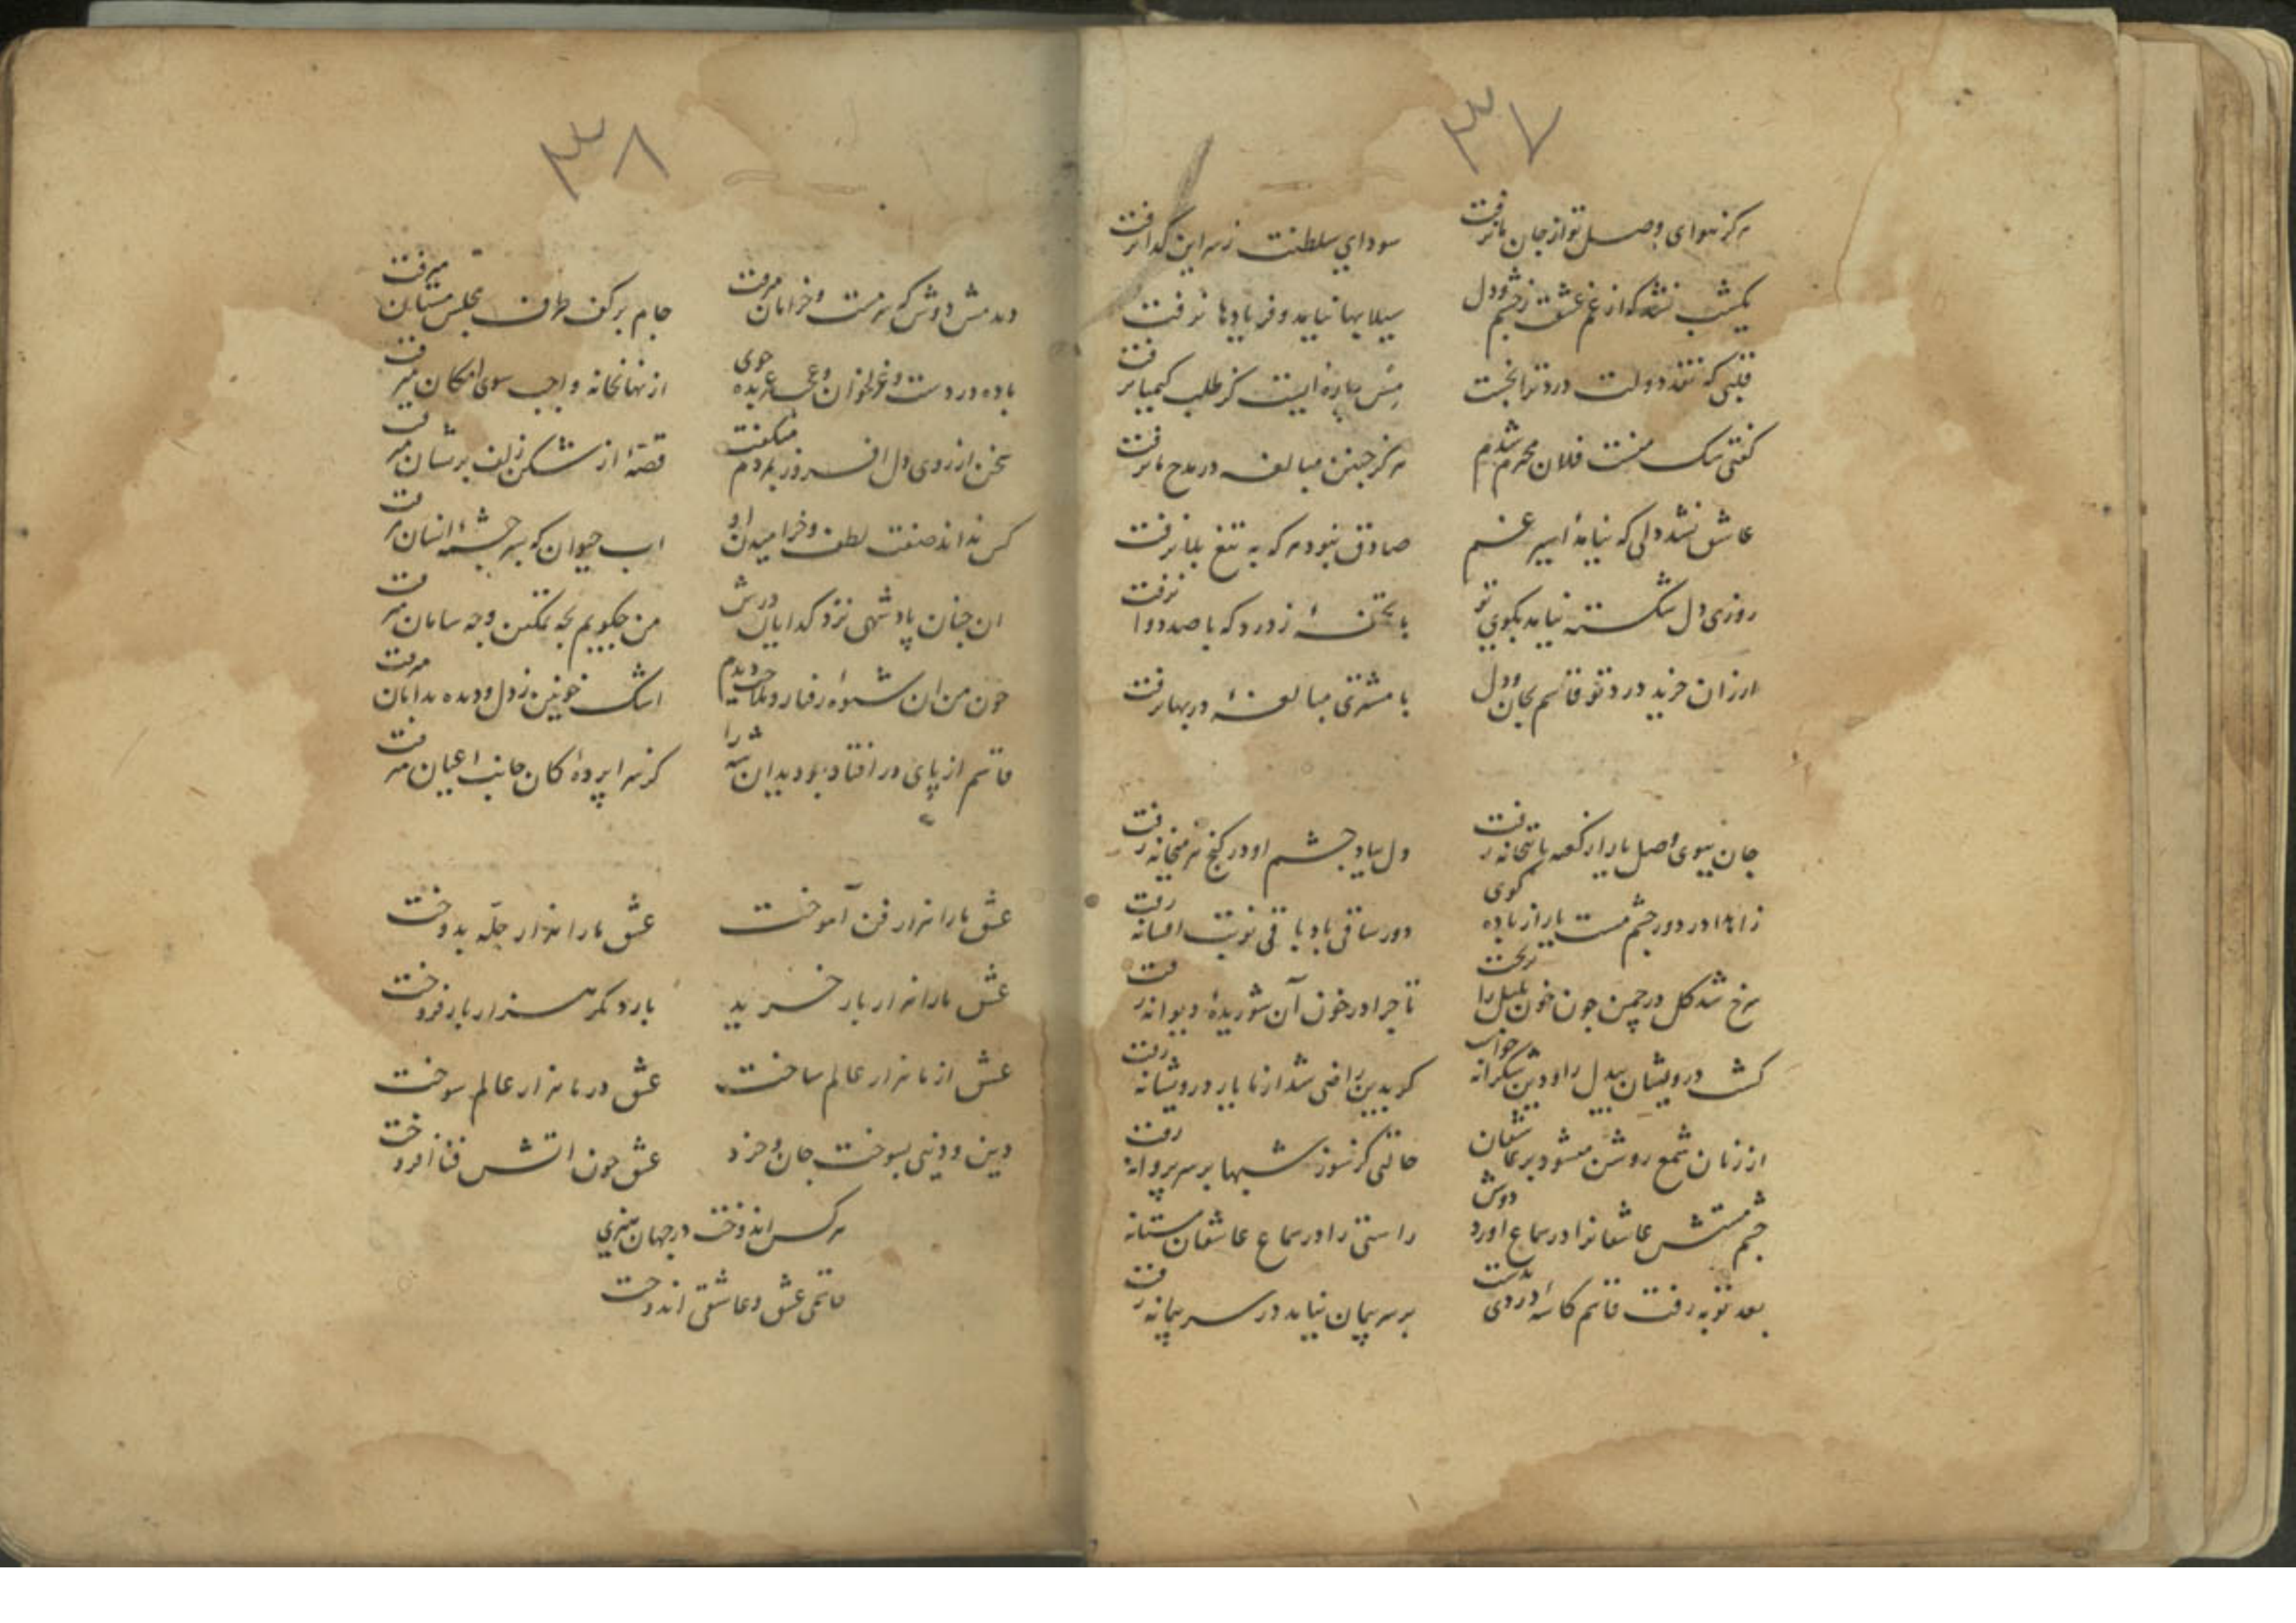 ۳۷
هرگز هوای وصل تو از جان ما نرفت
سودای سلطنت ز سر این گدا نرفت
یکشب نشد که از غم عشقت ز چشم و دل
سیلابها نیاید و فریادها نرفت
قلبی که نقد دولت درد ترا نجست
مس پاره ایست کز طلب کیمیا نرفت
گفتی سک منست فلان محترم شدم
هرگز چنین مبالغه در مدح ما نرفت
عاشق نشد دلی که نیامد اسیر غم
صادق نبود هر که به تیغ بلا نرفت
روزی دل شکسته نیامد بکوی تو
با تحفهٔ ز درد که با صد دوا نرفت
ارزان خرید درد تو قاسم بجان و دل
با مشتری مبالغهٔ در بها نرفت
جان ببوی وصل یار از کعبه با بتخانه رفت
دل بیاد چشم او در کنج هر میخانه رفت
زاهدا در دور چشم مست یار از باده گوی
دور ساقی باد باقی نوبت افسانه رفت
سرخ شد گل در چمن چون خون بلبل را بریخت
تا چرا در خون آن شوریدهٔ دیوانه رفت
کشت درویشان بیدل را و دین شکرانه خواست
کو بدین راضی شد از ما یار درویشانه رفت
از زبان شمع روشن میشود بر عاشقان
حالتی کز سوز شبها بر سر پروانه رفت
چشم مستش عاشقانرا در سماع آورد دوش
راستی را در سماع عاشقان مستانه
بعد توبه رفت قاسم کاسهٔ دردی بدست
بر سر پیمان نیامد در سر پیمانه رفت
۳۸
دیدمش دوش که سرمست و خرامان میرفت
جام بر کف طرف مجلس مستان میرفت
باده در دست و غزلخوان و عجب عربده جوی
از نهانخانه واجب سوی امکان میرفت
سخن از روی دل افروز بمردم میگفت
قصهٔ از شکن زلف پریشان میرفت
کس نداند صفت لطف و خرامیدن او
اب حیوان که بسر چشمهٔ انسان میرفت
ان چنان پادشهی نزد گدایان درش
من چگویم بچه تمکین و چه سامان میرفت
چون من ان شیوه رفتار و ملاحت دیدم
اشک خونین ز دل و دیده بدامان میرفت
قاسم از پای در افتاد چو دید ان شه را
کز سراپرده کان جانب اعیان میرفت
عشق ما را هزار فن آموخت
عشق ما را هزار جلّه بدوخت
عشق ما را هزار بار خرید
بار دگر هزار بار فروخت
عشق از ما هزار عالم ساخت
عشق در ما هزار عالم سوخت
دین و دنیی بسوخت جان و خرد
عشق چون اتش فنا افروخت
هر کس اندوخت در جهان هنری
قاسمی عشق و عاشقی اندوخت